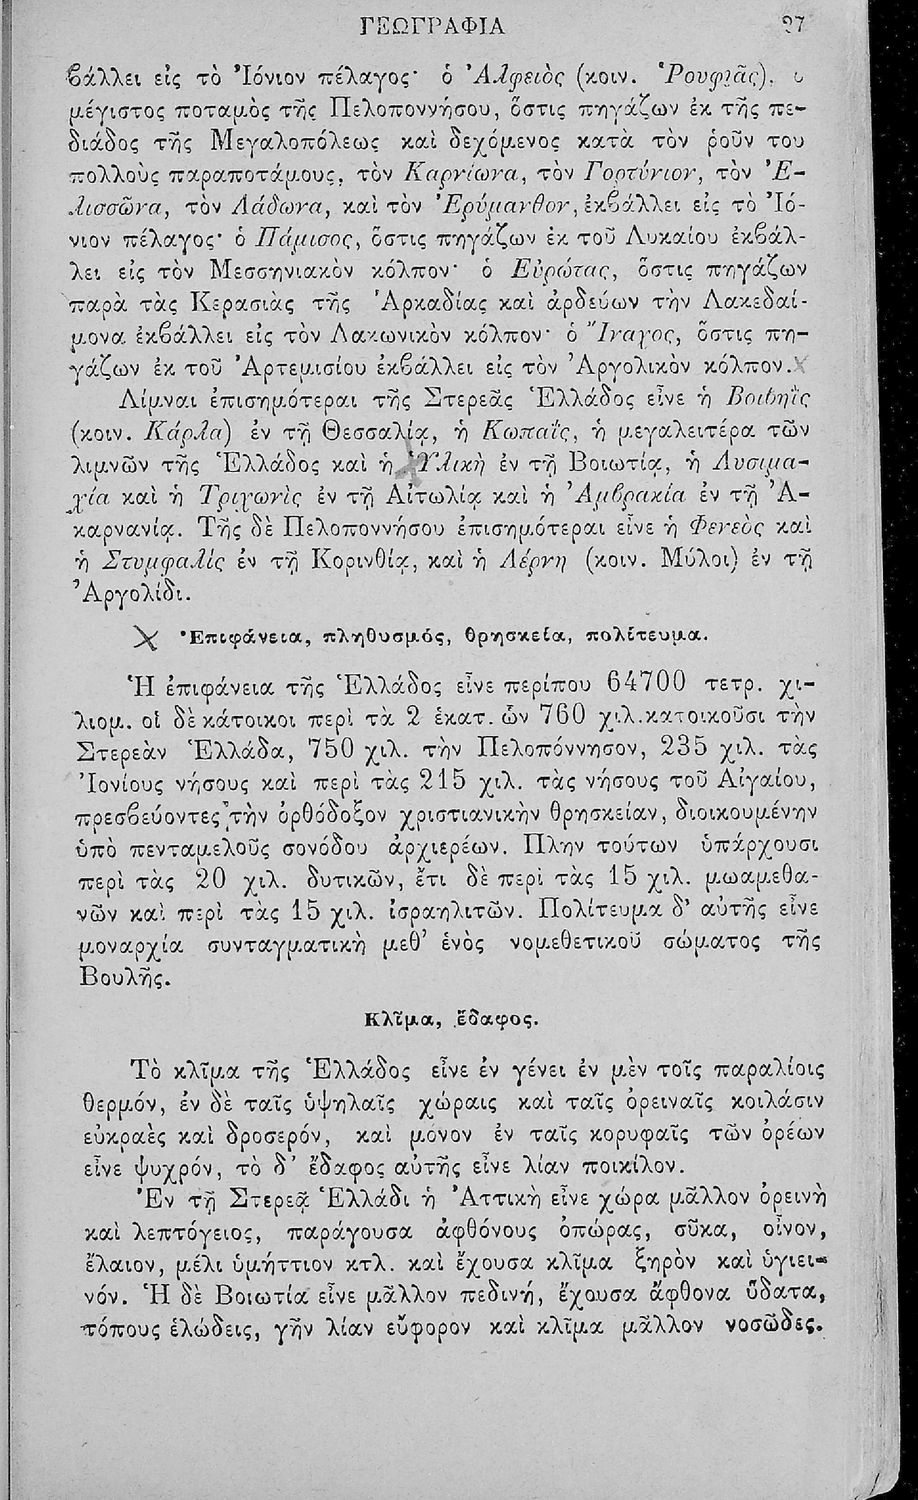 ΓΕΩΓΡΑΦΙΑ 27
βάλλει εἰς τὸ Ἰόνιον πέλαγος· ὁ Ἀλφειὸς (κοιν. Ῥουφιᾶς), ὁ
μέγιστος ποταμὸς τῆς Πελοποννήσου, ὅστις πηγάζων ἐκ τῆς πε-
διάδος τῆς Μεγαλοπόλεως καὶ δεχόμενος κατὰ τὸν ῥοῦν του
πολλοὺς παραποτάμους, τὸν Καρνίωνα, τὸν Γορτύνιον, τὸν Ἑ-
λισσῶνα, τὸν Λάδωνα, καὶ τὸν Ἐρύμανθον, ἐκβάλλει εἰς τὸ Ἰό-
νιον πέλαγος· ὁ Πάμισος, ὅστις πηγάζων ἐκ τοῦ Λυκαίου ἐκβάλ-
λει εἰς τὸν Μεσσηνιακὸν κόλπον· ὁ Εὐρώτας, ὅστις πηγάζων
παρὰ τὰς Κερασιὰς τῆς Ἀρκαδίας καὶ ἀρδεύων τὴν Λακεδαί-
μονα ἐκβάλλει εἰς τὸν Λακωνικὸν κόλπον· ὁ Ἴναχος, ὅστις πη-
γάζων ἐκ τοῦ Ἀρτεμισίου ἐκβάλλει εἰς τὸν Ἀργολικὸν κόλπον.
Λίμναι ἐπισημότεραι τῆς Στερεᾶς Ἑλλάδος εἶνε ἡ Βοιβηῒς
(κοιν. Κάρλα) ἐν τῇ Θεσσαλίᾳ, ἡ Κωπαΐς, ἡ μεγαλειτέρα τῶν
λιμνῶν τῆς Ἑλλάδος καὶ ἡ Ὑλικὴ ἐν τῇ Βοιωτίᾳ, ἡ Λυσιμα-
χία καὶ ἡ Τριχωνὶς ἐν τῇ Αἰτωλίᾳ καὶ ἡ Ἀμβρακία ἐν τῇ Ἀ-
καρνανίᾳ. Τῆς δὲ Πελοποννήσου ἐπισημότεραι εἶνε ἡ Φενεὸς καὶ
ἡ Στυμφαλὶς ἐν τῇ Κορινθίᾳ, καὶ ἡ Λέρνη (κοιν. Μύλοι) ἐν τῇ
Ἀργολίδι.
Ἐπιφάνεια, πληθυσμός, θρησκεία, πολίτευμα.
Ἡ ἐπιφάνεια τῆς Ἑλλάδος εἶνε περίπου 64700 τετρ. χι-
λιομ. οἱ δὲ κάτοικοι περὶ τὰ 2 ἑκατ. ὧν 760 χιλ. κατοικοῦσι τὴν
Στερεὰν Ἑλλάδα, 750 χιλ. τὴν Πελοπόννησον, 235 χιλ. τὰς
Ἰονίους νήσους καὶ περὶ τὰς 215 χιλ. τὰς νήσους τοῦ Αἰγαίου,
πρεσβεύοντες τὴν ὀρθόδοξον χριστιανικὴν θρησκείαν, διοικουμένην
ὑπὸ πενταμελοῦς σονόδου ἀρχιερέων. Πλην τούτων ὑπάρχουσι
περὶ τὰς 20 χιλ. δυτικῶν, ἔτι δὲ περὶ τὰς 15 χιλ. μωαμεθα-
νῶν καὶ περὶ τὰς 15 χιλ. ἰσραηλιτῶν. Πολίτευμα δ’ αὐτῆς εἶνε
μοναρχία συνταγματικὴ μεθ’ ἑνὸς νομεθετικοῦ σώματος τῆς
Βουλῆς.
Κλῖμα, ἔδαφος.
Τὸ κλῖμα τῆς Ἑλλάδος εἶνε ἐν γένει ἐν μὲν τοῖς παραλίοις
θερμόν, ἐν δὲ ταῖς ὑψηλαῖς χώραις καὶ ταῖς ὀρειναῖς κοιλάσιν
εὐκραὲς καὶ δροσερόν, καὶ μόνον ἐν ταῖς κορυφαῖς τῶν ὀρέων
εἶνε ψυχρόν, τὸ δ’ ἔδαφος αὐτῆς εἶνε λίαν ποικίλον.
Ἐν τῇ Στερεᾷ Ἑλλάδι ἡ Ἀττικὴ εἶνε χώρα μᾶλλον ὀρεινὴ
καὶ λεπτόγειος, παράγουσα ἀφθόνους ὀπώρας, σῦκα, οἶνον,
ἔλαιον, μέλι ὑμήττιον κτλ. καὶ ἔχουσα κλῖμα ξηρὸν καὶ ὑγιει-
νόν. Ἡ δὲ Βοιωτία εἶνε μᾶλλον πεδινή, ἔχουσα ἄφθονα ὕδατα,
τόπους ἑλώδεις, γῆν λίαν εὔφορον καὶ κλῖμα μᾶλλον νοσῶδες.